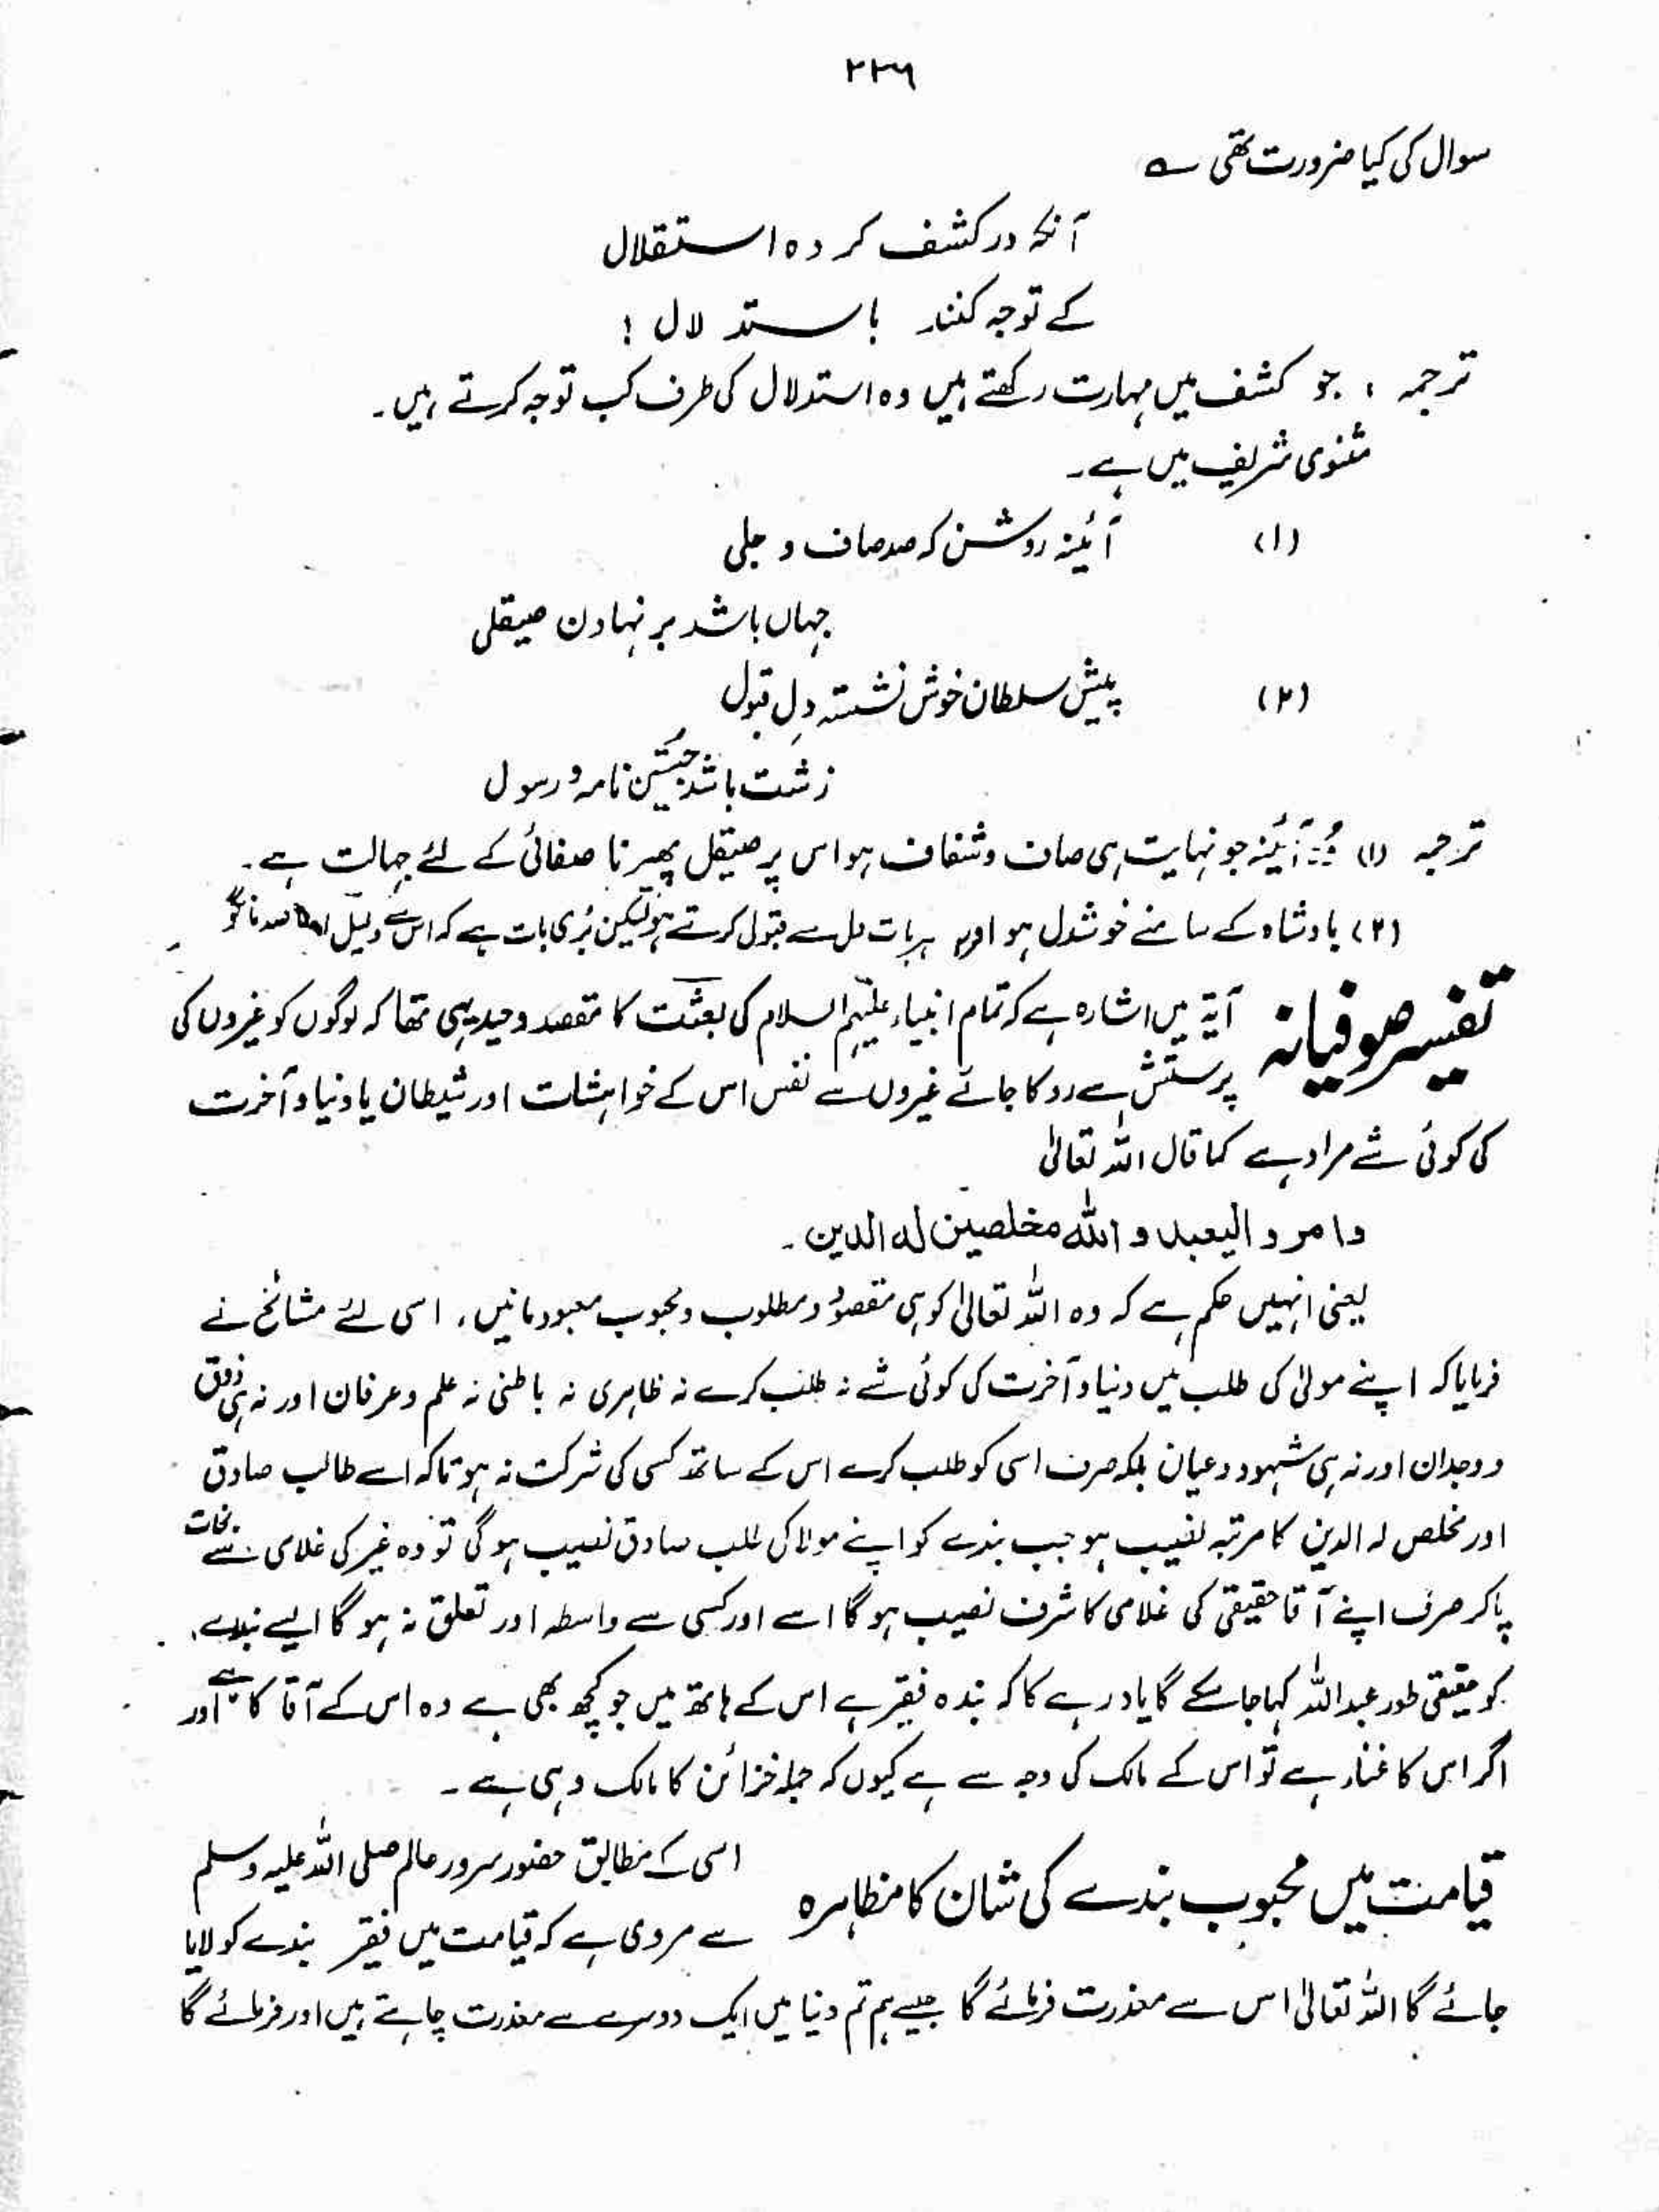 ۲۳۶
سوال کی کیا ضرورت تھی ؎
آنکہ در کشف کردہ استقلال
کے توجہ کنند باستدلال !
ترجمہ : جو کشف میں مہارت رکھتے ہیں وہ استدلال کی طرف کب توجہ کرتے ہیں۔
مثنوی شریف میں ہے۔
(۱) آئینہ روشن کہ صد صاف و جلی
جہاں باشد بر نہادن صیقلی
(۲) پیش سلطان خوش نشستہ دِل قبول
زشت باشد جُستن نامہ و رسول
ترجمہ (۱) آئینہ جو نہایت ہی صاف و شفاف ہو اس پر صیقل پھیرنا صفائی کے لئے جہالت ہے۔
(۲) بادشاہ کے سامنے خوشدل ہو اور ہر بات دل سے قبول کرتے ہو لیکن بُری بات ہے کہ اس سے دلیل
تفسیر صوفیانہ آیۃ میں اشارہ ہے کہ تمام انبیاء علیہم السلام کی بعثت کا مقصد وحید یہی تھا کہ لوگوں کو غیروں کی
پرستش سے روکا جائے غیروں سے نفس اس کے خواہشات اور شیطان یا دنیا و آخرت
کی کوئی شے مراد ہے کما قال اللہ تعالیٰ
وامروالیعبدواللہ مخلصین لہ الدین۔
یعنی انہیں حکم ہے کہ وہ اللہ تعالیٰ کو ہی مقصود و مطلوب و محبوب معبود مانیں، اسی لئے مشائخ نے
فرمایا کہ اپنے مولیٰ کی طلب میں دنیا و آخرت کی کوئی شے نہ طلب کرے نہ ظاہری نہ باطنی نہ علم و عرفان اور نہ ہی ذوق
و وجدان اور نہ ہی شہود و عیان بلکہ صرف اسی کو طلب کرے اس کے ساتھ کسی کی شرکت نہ ہو تاکہ اسے طالب صادق
اور مخلص لہ الدین کا مرتبہ نصیب ہو جب بندے کو اپنے مولا کی طلب صادق نصیب ہو گی تو وہ غیر کی غلامی سے نجات
پا کر صرف اپنے آقا حقیقی کی غلامی کا شرف نصیب ہو گا اسے اور کسی سے واسطہ اور تعلق نہ ہو گا ایسے بندے
کو حقیقی طور عبداللہ کہا جا سکے گا یاد رہے کا کہ بندہ فقیر ہے اس کے ہاتھ میں جو کچھ بھی ہے وہ اس کے آقا کا ہے اور
اگر اس کا غناء ہے تو اس کے مالک کی وجہ سے ہے کیوں کہ جملہ خزائن کا مالک وہی ہے۔
قیامت میں محبوب بندے کی شان کا مظاہرہ اسی کے مطابق حضور سرور عالم صلی اللہ علیہ وسلم
سے مروی ہے کہ قیامت میں فقیر بندے کو لایا
جائے گا اللہ تعالیٰ اس سے معذرت فرمائے گا جیسے ہم تم دنیا میں ایک دوسرے سے معذرت چاہتے ہیں اور فرمائے گا